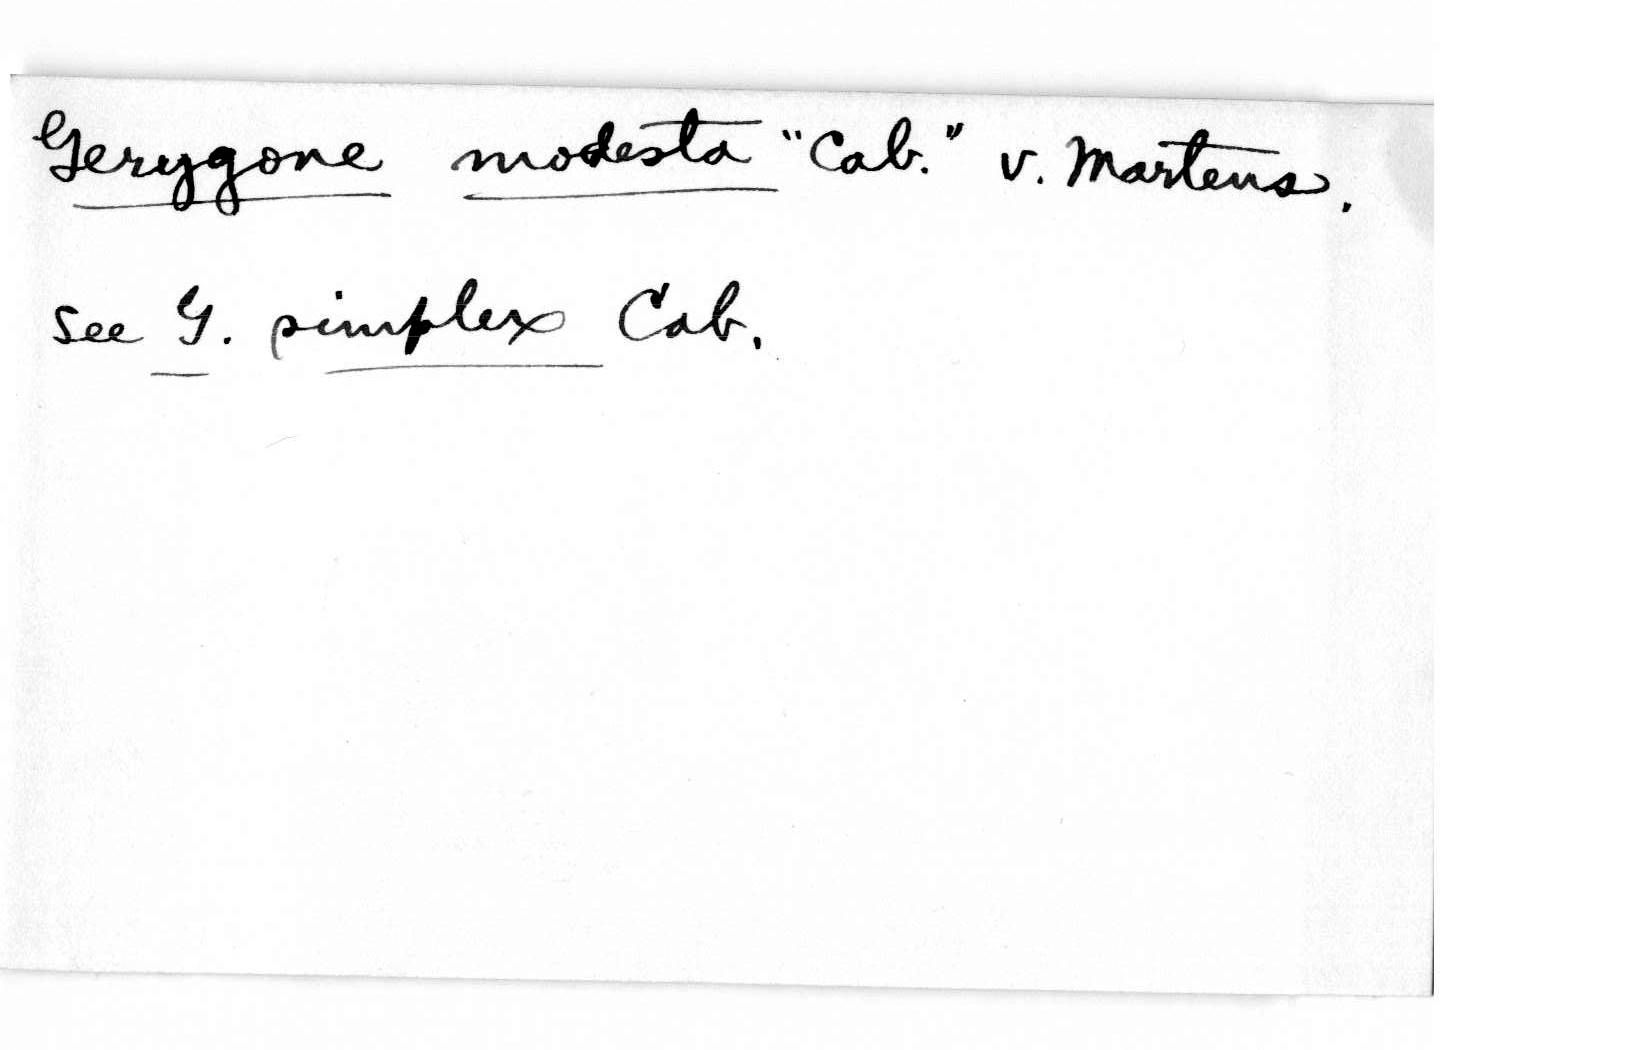 Gerygone modesta "Cab." v. Martens.
See G. simplex Cab.